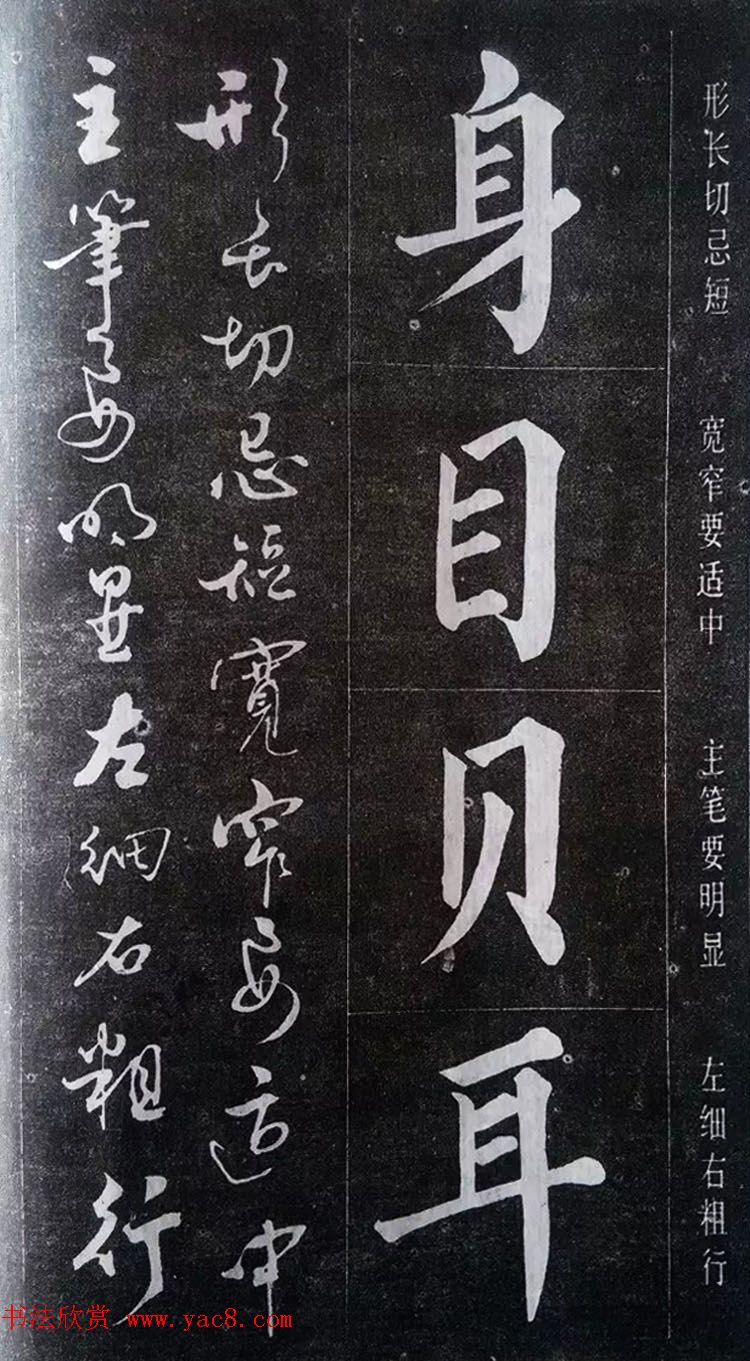 形长切忌短 宽窄要适中 主笔要明显 左细右粗行
身目贝耳
形长切忌短寬窄要适中
主筆要明显左细右粗行
书法欣赏 www.yac8.com